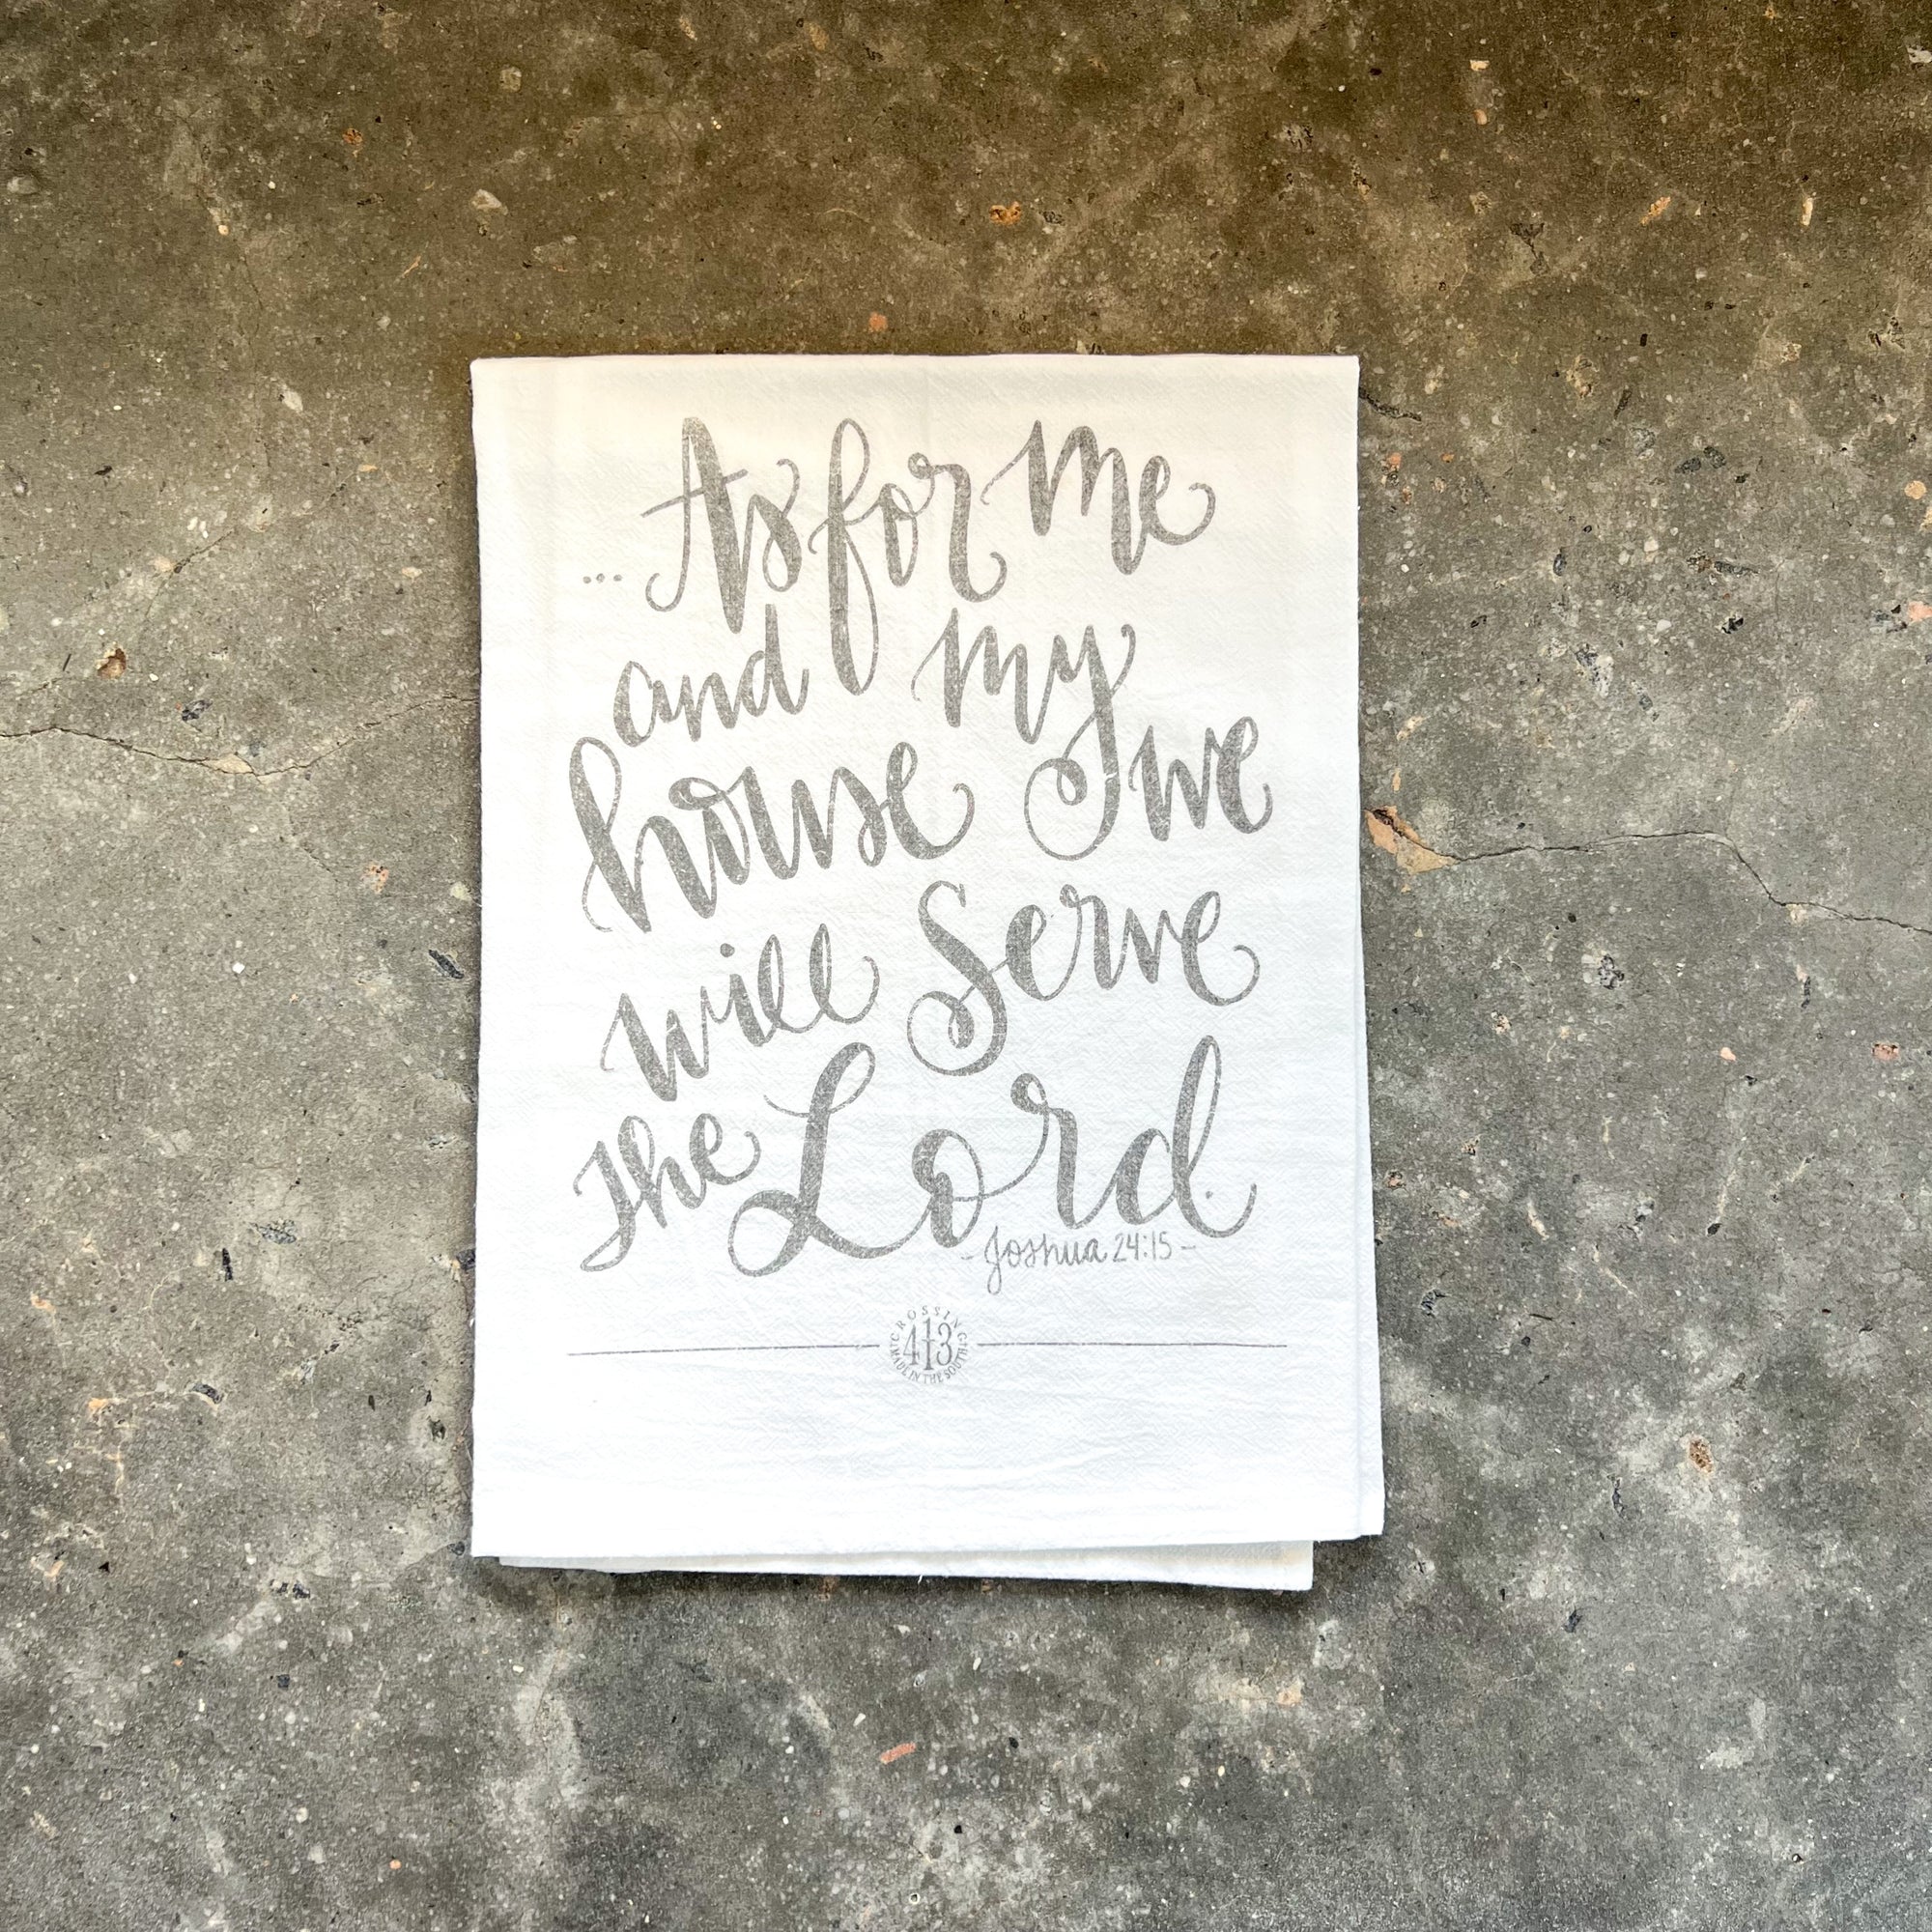 ...As for me
and my
house we
will Serve
the Lord.
- Joshua 24:15 -
CROSSING
413
MADE IN THE SOUTH